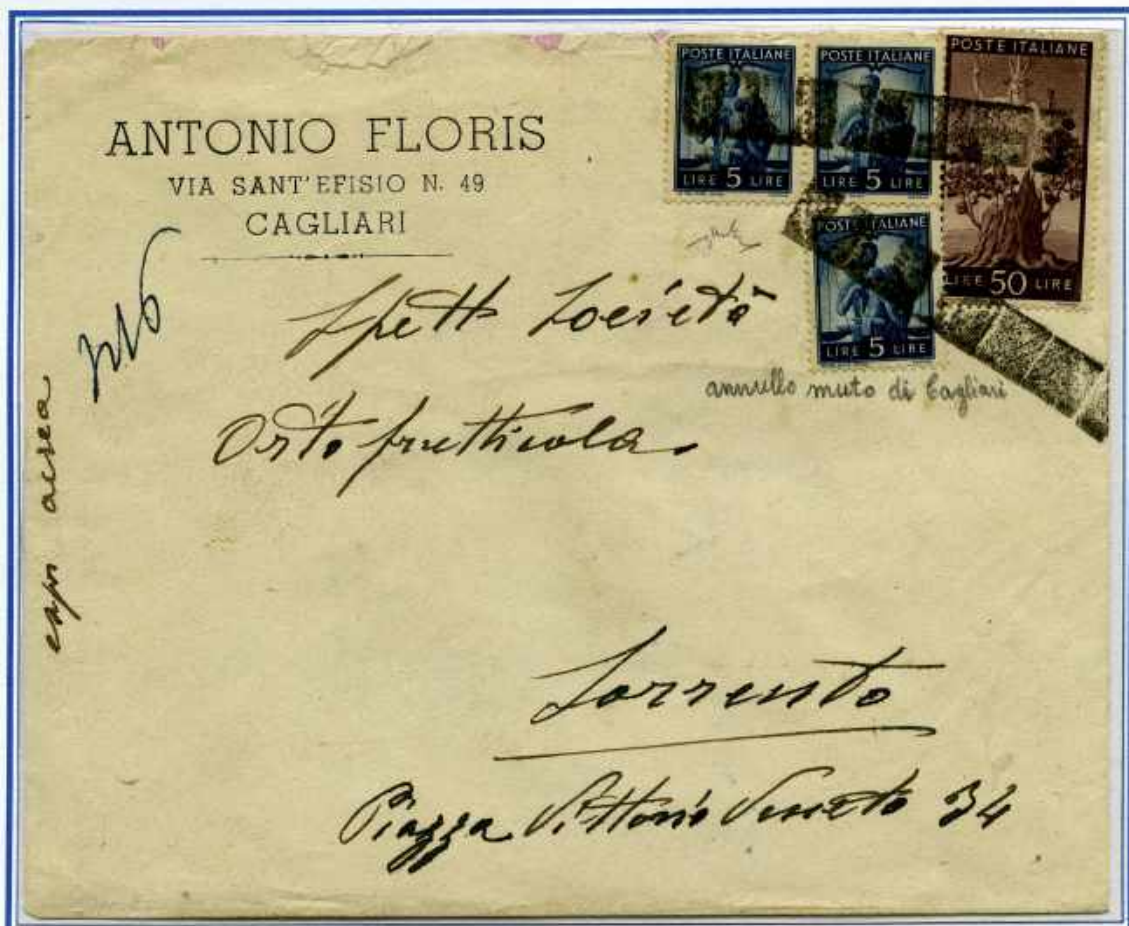 ANTONIO FLORIS
VIA SANT'EFISIO N. 49
CAGLIARI
POSTE ITALIANE
LIRE 5 LIRE
POSTE ITALIANE
LIRE 5 LIRE
POSTE ITALIANE
LIRE 50 LIRE
POSTE ITALIANE
LIRE 5 LIRE
annullo muto di Cagliari
Spett Società
Ortofrutticola
Sorrento
Piazza Vittorio Veneto 34
aerea